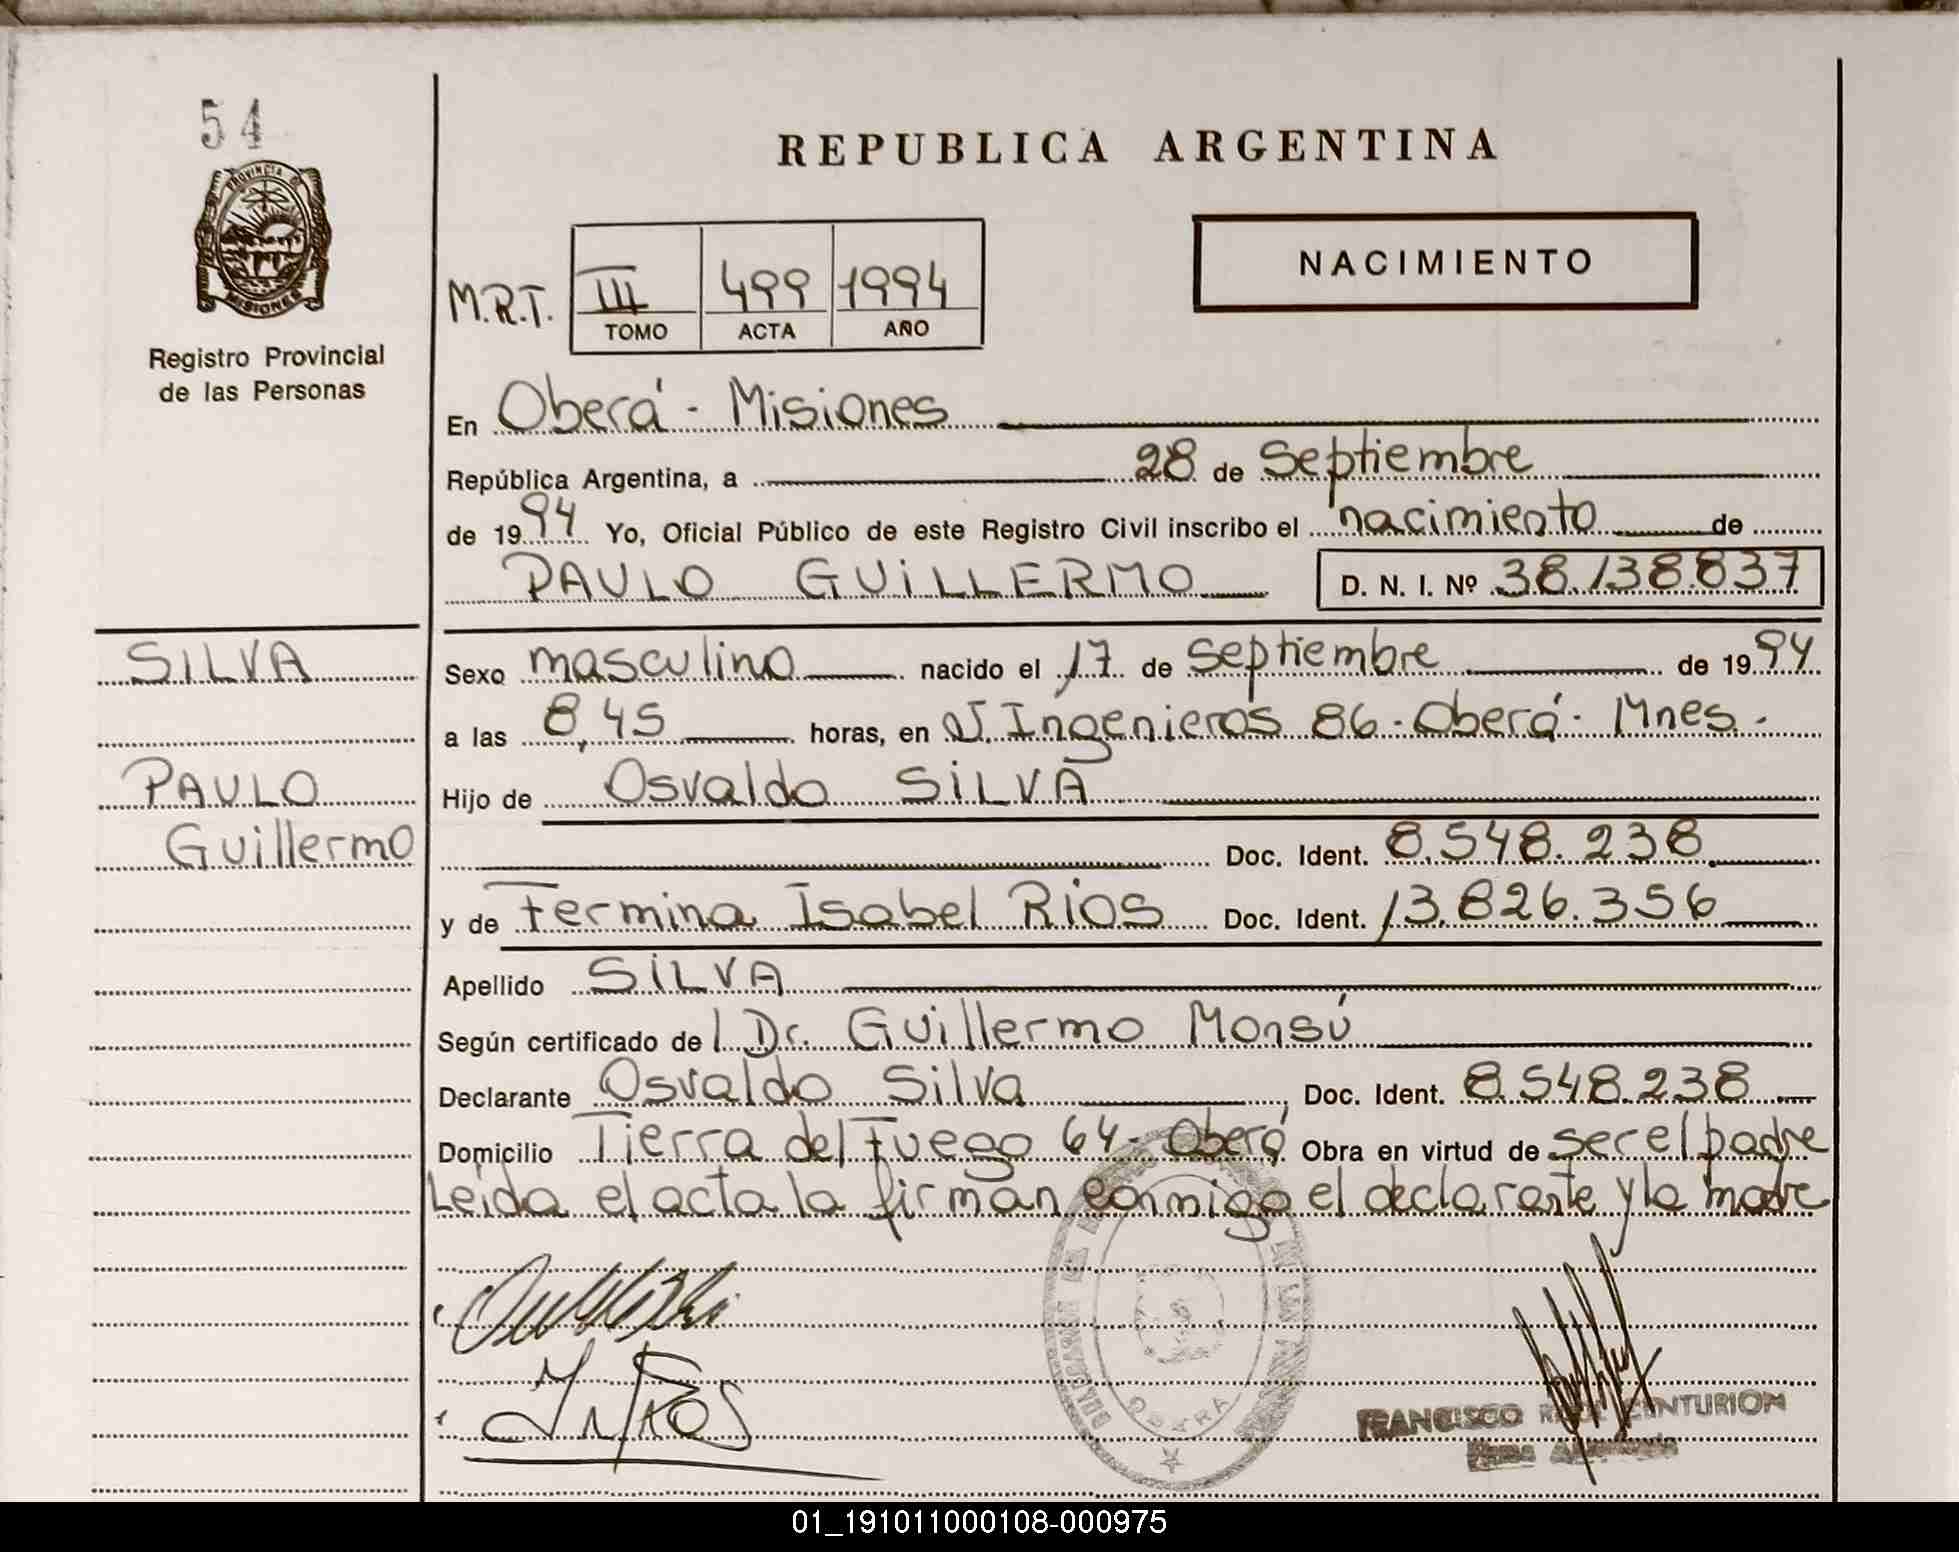 54
PROVINCIA DE
MISIONES
Registro Provincial
de las Personas
REPUBLICA ARGENTINA
NACIMIENTO
M.R.T. III 499 1994
TOMO ACTA AÑO
En Oberá - Misiones
República Argentina, a 28 de Septiembre
de 1994 Yo, Oficial Público de este Registro Civil inscribo el nacimiento de
PAULO GUILLERMO D. N. I. Nº 38.138.837
SILVA
PAULO
Guillermo
Sexo masculino nacido el 17 de Septiembre de 1994
a las 8,45 horas, en J. Ingenieros 86 - Oberá - Mnes.
Hijo de Osvaldo SILVA
Doc. Ident. 8.548.238
y de Fermina Isabel Rios Doc. Ident. 13.826.356
Apellido SILVA
Según certificado de l Dr. Guillermo Monsú
Declarante Osvaldo Silva Doc. Ident. 8.548.238
Domicilio Tierra del Fuego 64 - Oberá Obra en virtud de ser el padre
Leída el acta la firman conmigo el declarante y la madre
OBERA
FRANCISCO CENTURION
01_191011000108-000975